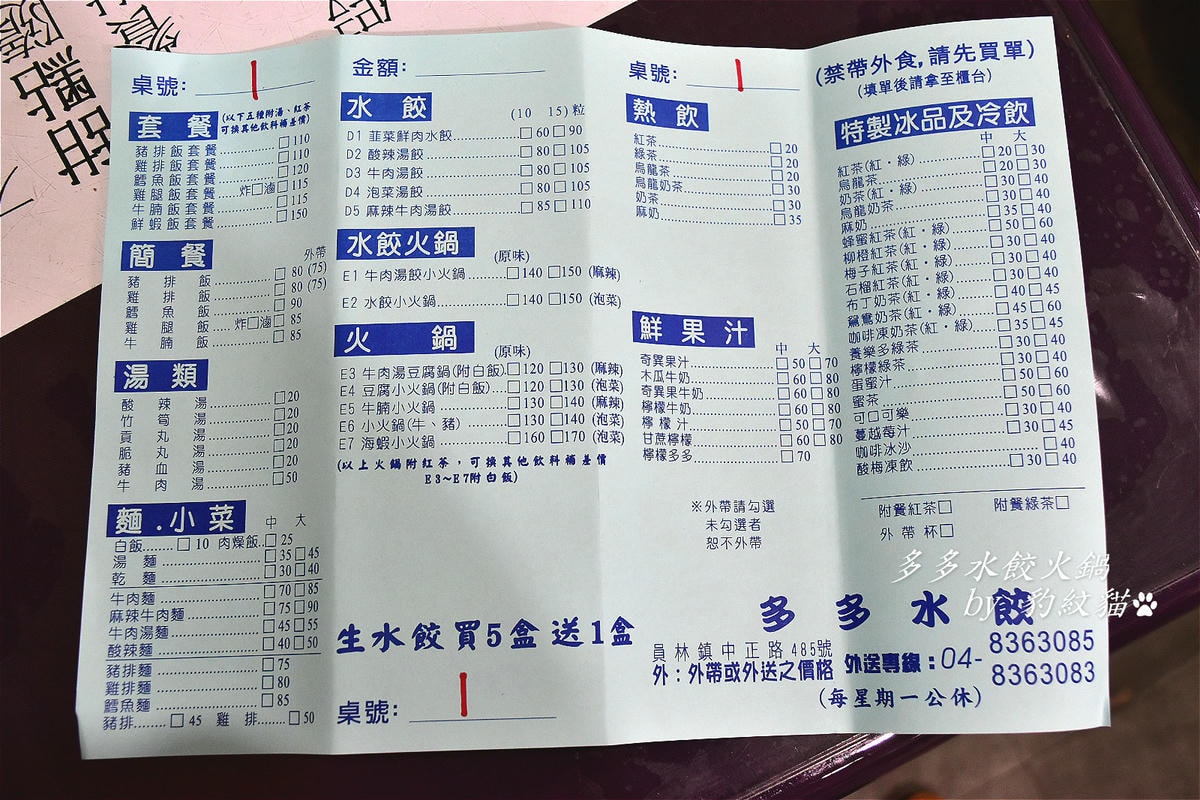 桌號: 1
套餐 (以下五種附湯、紅茶
可換其他飲料補差價)
豬排飯套餐 □110
雞排飯套餐 □110
鱈魚飯套餐 □120
雞腿飯套餐 炸□滷□115
牛腩飯套餐 □115
鮮蝦飯套餐 □150
簡餐 外帶
豬排飯 □80 (75)
雞排飯 □80 (75)
鱈魚飯 □90
雞腿飯 炸□滷□85
牛腩飯 □85
湯類
酸辣湯 □20
竹筍湯 □20
貢丸湯 □20
脆丸湯 □20
豬血湯 □20
牛肉湯 □50
麵.小菜 中 大
白飯 □10 肉燥飯 □25
湯麵 □35 □45
乾麵 □30 □40
牛肉麵 □70 □85
麻辣牛肉麵 □75 □90
牛肉湯麵 □45 □55
酸辣麵 □40 □50
豬排麵 □75
雞排麵 □80
鱈魚麵 □85
豬排 □45 雞排 □50
金額:
水餃 (10 15)粒
D1 韮菜鮮肉水餃 □60 □90
D2 酸辣湯餃 □80 □105
D3 牛肉湯餃 □80 □105
D4 泡菜湯餃 □80 □105
D5 麻辣牛肉湯餃 □85 □110
水餃火鍋 (原味)
E1 牛肉湯餃小火鍋 □140 □150 (麻辣)
E2 水餃小火鍋 □140 □150 (泡菜)
火鍋 (原味)
E3 牛肉湯豆腐鍋(附白飯) □120 □130 (麻辣)
E4 豆腐小火鍋(附白飯) □120 □130 (泡菜)
E5 牛腩小火鍋 □130 □140 (麻辣)
E6 小火鍋(牛、豬) □130 □140 (泡菜)
E7 海蝦小火鍋 □160 □170 (泡菜)
(以上火鍋附紅茶,可換其他飲料補差價
E3~E7附白飯)
生水餃買5盒送1盒
桌號: 1
桌號: 1
熱飲
紅茶 □20
綠茶 □20
烏龍茶 □20
烏龍奶茶 □30
奶茶 □30
麻奶 □35
鮮果汁 中 大
奇異果汁 □50 □70
木瓜牛奶 □60 □80
奇異果牛奶 □60 □80
檸檬牛奶 □60 □80
檸檬汁 □50 □70
甘蔗檸檬 □60 □80
檸檬多多 □70
※外帶請勾選
未勾選者
恕不外帶
(禁帶外食,請先買單)
(填單後請拿至櫃台)
特製冰品及冷飲
中 大
紅茶(紅・綠) □20 □30
烏龍茶 □20 □30
奶茶(紅・綠) □30 □40
烏龍奶茶 □30 □40
麻奶 □35 □40
蜂蜜紅茶(紅・綠) □50 □60
柳橙紅茶(紅・綠) □30 □40
梅子紅茶(紅・綠) □30 □40
石榴紅茶(紅・綠) □30 □40
布丁奶茶(紅・綠) □40 □45
鴛鴦奶茶(紅・綠) □45 □60
咖啡凍奶茶(紅・綠) □35 □45
養樂多綠茶 □30 □40
檸檬綠茶 □30 □40
蛋蜜汁 □50 □60
蜜茶 □30 □40
可口可樂 □30 □40
蔓越莓汁 □30 □45
咖啡冰沙 □40
酸梅凍飲 □30 □40
附餐紅茶□ 附餐綠茶□
外帶杯□
多多水餃火鍋
by 豹紋貓
多多水餃
員林鎮中正路485號
外:外帶或外送之價格 外送專線:04-8363085
8363083
(每星期一公休)